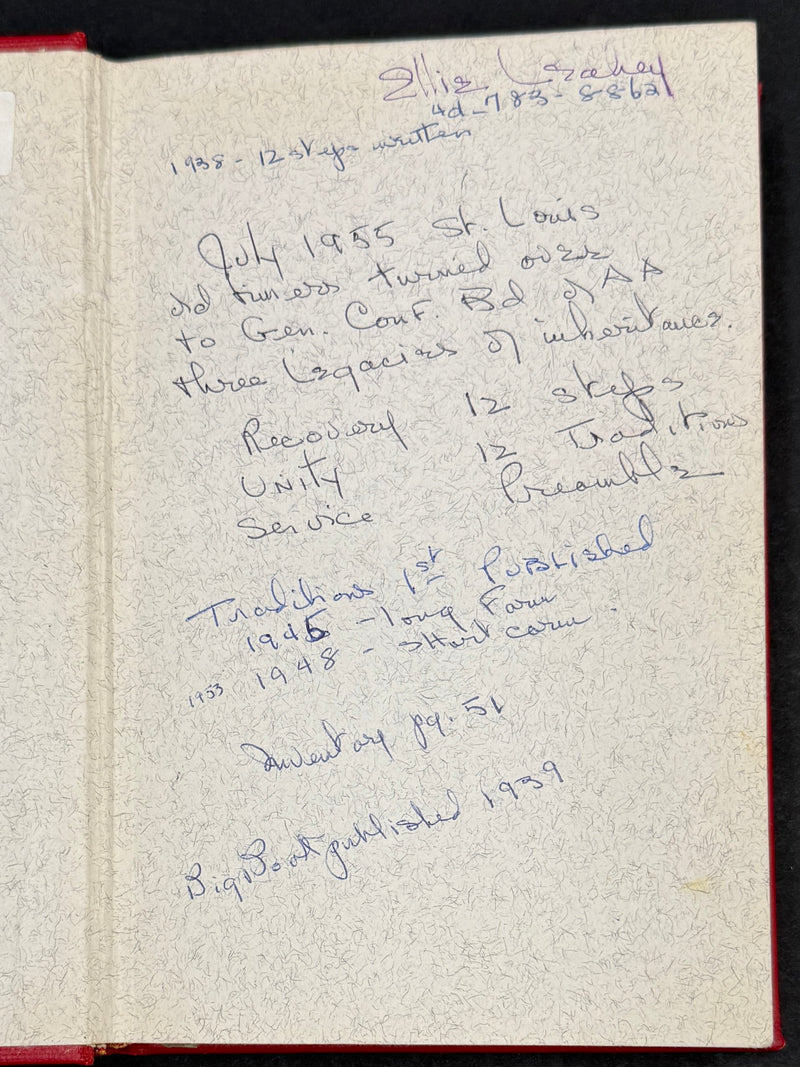 Ellie Leahey
4d-783-8862
1938 - 12 steps written
July 1955 St. Louis
old timers turned over
to Gen. Conf. Bd of AA
three Legacies of inheritances.
Recovery 12 steps
Unity 12 Traditions
Service Preamble
Traditions 1st Published
1945 - long Form
1953 1948 - short form.
Inventory pg. 51
Big Book published 1939